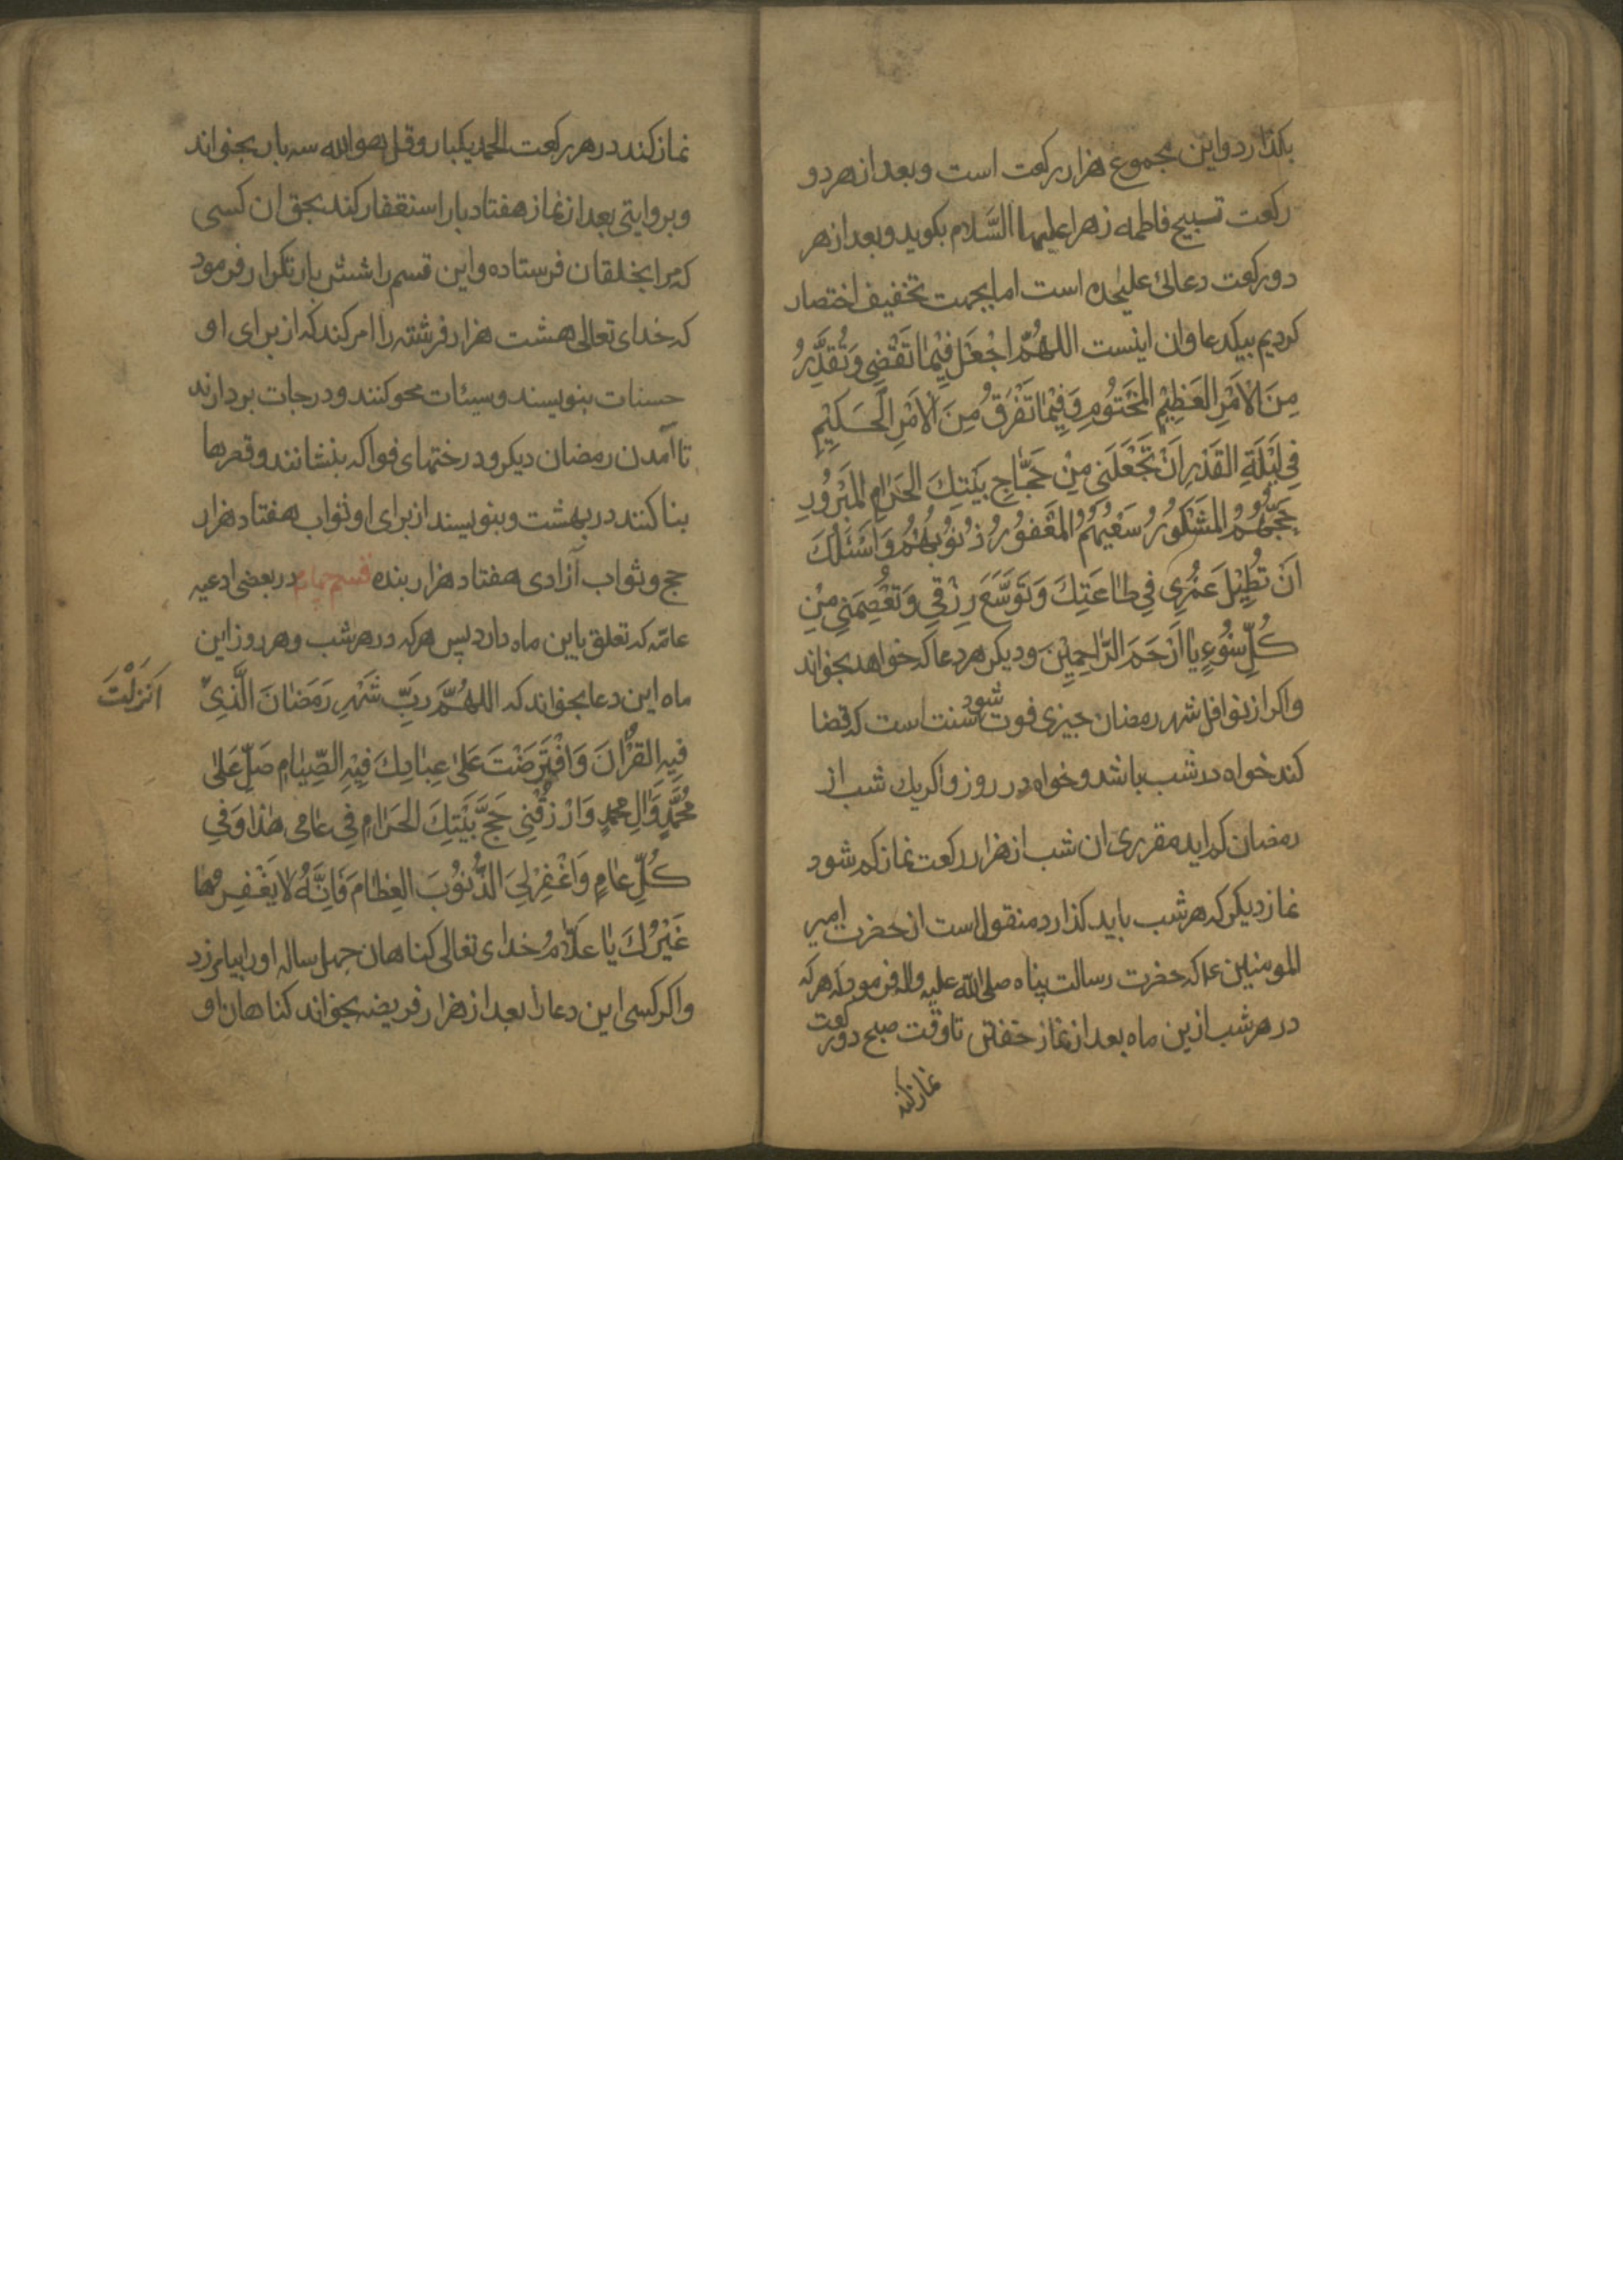 بکذارد واین مجموع هزار رکعت است وبعد از هر دو
رکعت تسبیح فاطمه زهرا علیها السَّلام بکوید وبعد از هر
دو رکعت دعائی علیحده است اما بجهت تخفیف اختصار
کردیم بیکدعا وان اینست اللهُمَّ اجْعَلْ فِیْمٰا تَقْضِی وَتُقَدِّرُ
مِنَ الاَمْرِ العَظِیْمِ المَحْتُوْمِ وَفِیْمٰا تَفْرُقُ مِنَ الاَمْرِ الحَکِیْمِ
فِی لَیْلَةِ القَدْرِ اَنْ تَجْعَلَنِی مِنْ حُجّٰاجِ بَیْتِكَ الحَرٰامِ المَبْرُوْرِ
حَجُّهُمُ المَشْکُوْرُ سَعْیُهُمُ المَغْفُوْرُ ذُنُوْبُهُمْ وَاَسْئَلُكَ
اَنْ تُطِیْلَ عُمُرِی فِی طٰاعَتِكَ وَتُوَسِّعَ رِزْقِی وَتَعْصِمَنِی مِنْ
کُلِّ سُوْءٍ یٰا اَرْحَمَ الرّٰاحِمِیْنَ ودیکر هر دعا که خواهد بخواند
واکر از نوافل شهر رمضان چیزی فوت شود سنت است که قضا
کند خواه در شب باشد وخواه در روز واکر یك شب از
رمضان کم اید مقرری ان شب از هزار رکعت نماز کم شود
نماز دیکر که هر شب باید کذارد منقول است از حضرت امیر
المومنین ع که حضرت رسالت پناه صلی الله علیه واله فرمود که هر که
در هر شب ازین ماه بعد از نماز خفتن تا وقت صبح دو رکعت
نماز کند
نماز کند در هر رکعت الحمد یکبار وقل هو الله سه بار بخواند
وبروایتی بعد از نماز هفتاد بار استغفار کند بحق ان کسی
که مرا بخلقان فرستاده واین قسم را شش بار تکرار فرمود
که خدای تعالی هشت هزار فرشته را امر کند که از برای او
حسنات بنویسند وسیئات محو کنند ودرجات بردارند
تا آمدن رمضان دیکر ودرختهای فواکه بنشانند وقصرها
بنا کنند در بهشت وبنویسند از برای او ثواب هفتاد هزار
حج وثواب آزادی هفتاد هزار بنده قسم چهارم در بعضی ادعیه
عامّه که تعلق باین ماه دارد پس هر که در هر شب وهر روز این
ماه این دعا بخواند که اللهُمَّ رَبَّ شَهْرِ رَمَضٰانَ الَّذِیْ اَنْزَلْتَ
فِیْهِ القُرْاٰنَ وَافْتَرَضْتَ عَلٰی عِبٰادِكَ فِیْهِ الصِّیٰامَ صَلِّ عَلٰی
مُحَمَّدٍ وَاٰلِ مُحَمَّدٍ وَارْزُقْنِی حَجَّ بَیْتِكَ الحَرٰامِ فِی عٰامِی هٰذٰا وَفِی
کُلِّ عٰامٍ وَاغْفِرْ لِیَ الذُّنُوْبَ العِظٰامَ فَاِنَّهُ لاٰ یَغْفِرُهٰا
غَیْرُكَ یٰا عَلّٰامُ خدای تعالی کناهان چهل ساله او را بیامرزد
واکر کسی این دعا را بعد از هزار فریضه بخواند کناهان او